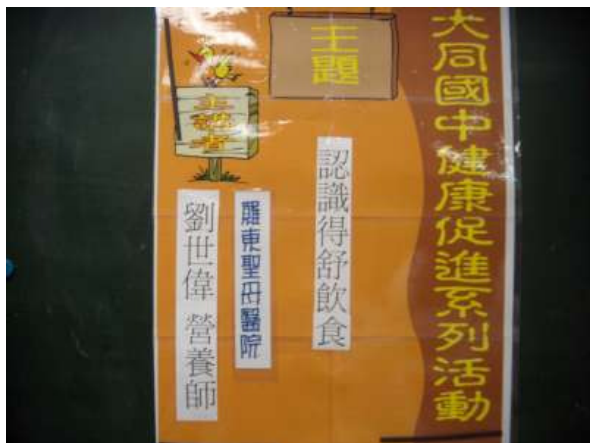 大同國中健康促進系列活動
主題
認識得舒飲食
主講者
羅東聖母醫院
劉世偉 營養師